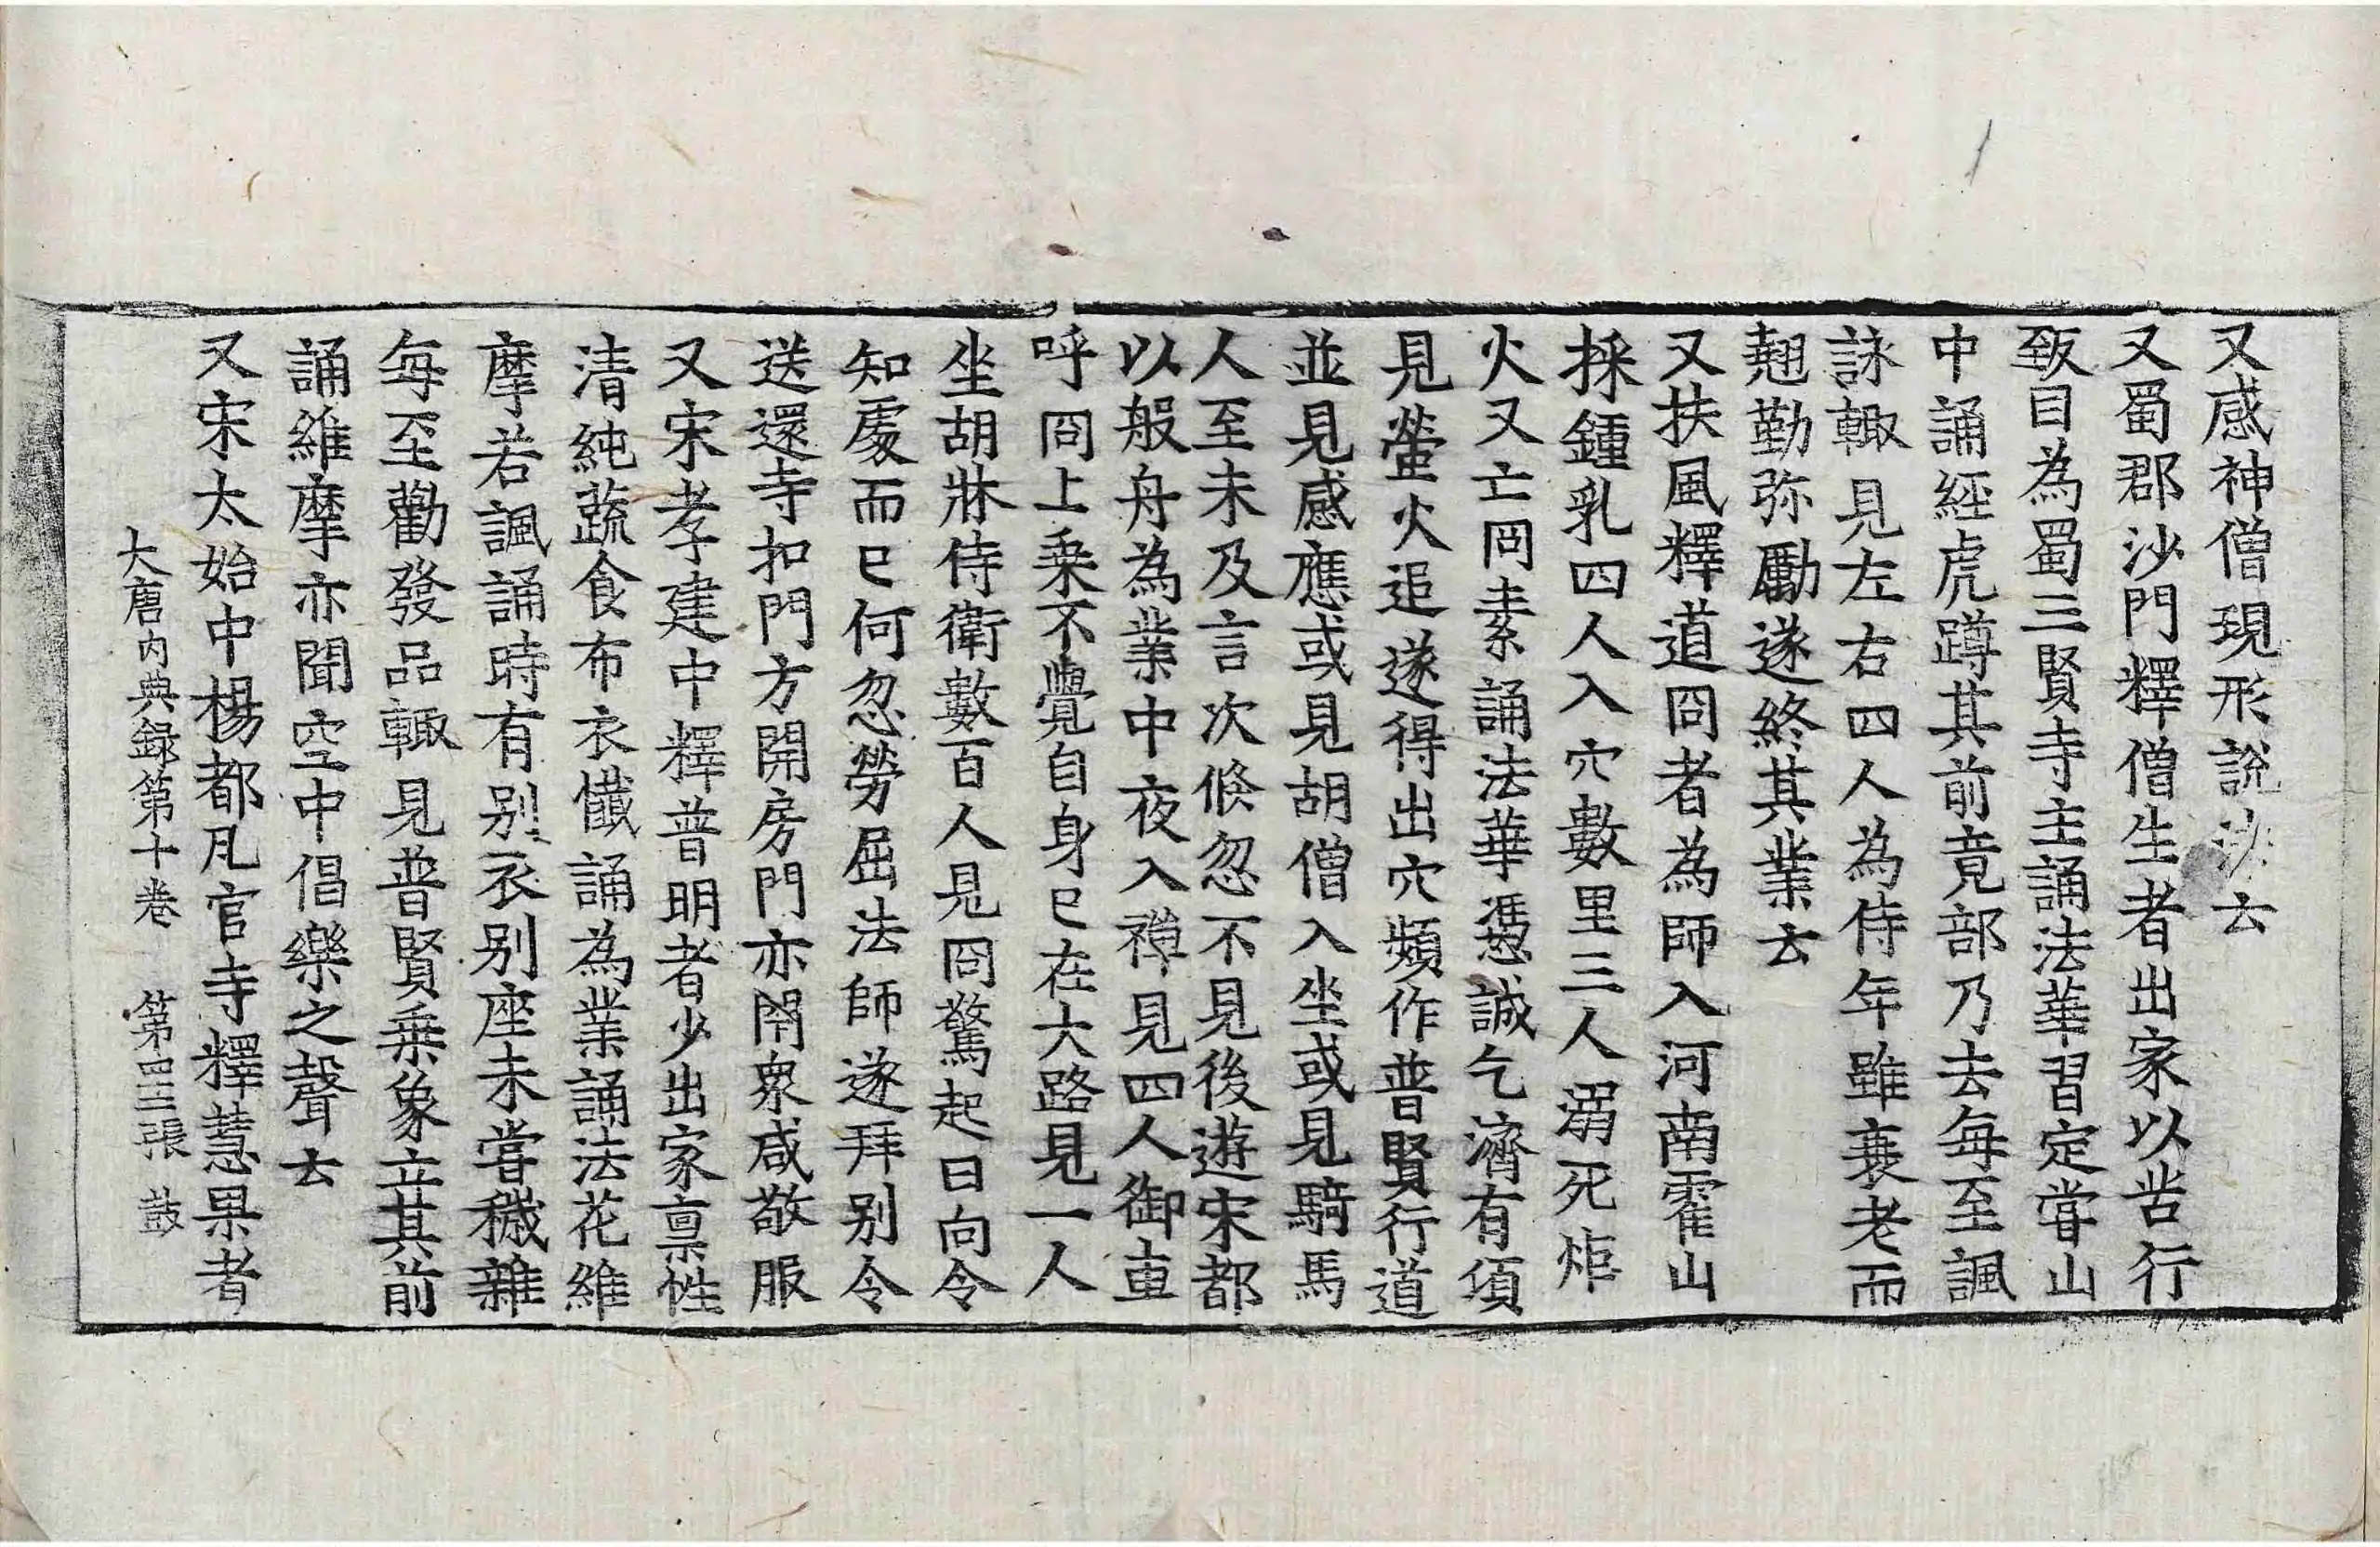 又感神僧現形說法云
又蜀郡沙門釋僧生者出家以苦行
致目為蜀三賢寺主誦法華習定甞山
中誦經虎蹲其前竟部乃去每至諷
詠輙見左右四人為侍年雖衰老而
翹勤弥勵遂終其業云
又扶風釋道冏者為師入河南霍山
採鍾乳四人入穴數里三人溺死炬
火又亡冏素誦法華憑誠乞濟有須
見螢火追遂得出穴頻作普賢行道
並見感應或見胡僧入坐或見騎馬
人至未及言次倏忽不見後遊宋都
以般舟為業中夜入禪見四人御車
呼冏上乗不覺自身已在大路見一人
坐胡牀侍衛數百人見冏驚起曰向令
知處而已何忽勞屈法師遂拜别令
送還寺扣門方開房門亦閇衆咸敬服
又宋孝建中釋普明者少出家禀性
清純蔬食布衣懺誦為業誦法花維
摩若諷誦時有别衣别座未甞穢雜
每至勸發品輙見普賢乗象立其前
誦維摩亦聞空中倡樂之聲云
又宋太始中楊都瓦官寺釋慧果者
大唐内典録第十卷 第四三張 鼓